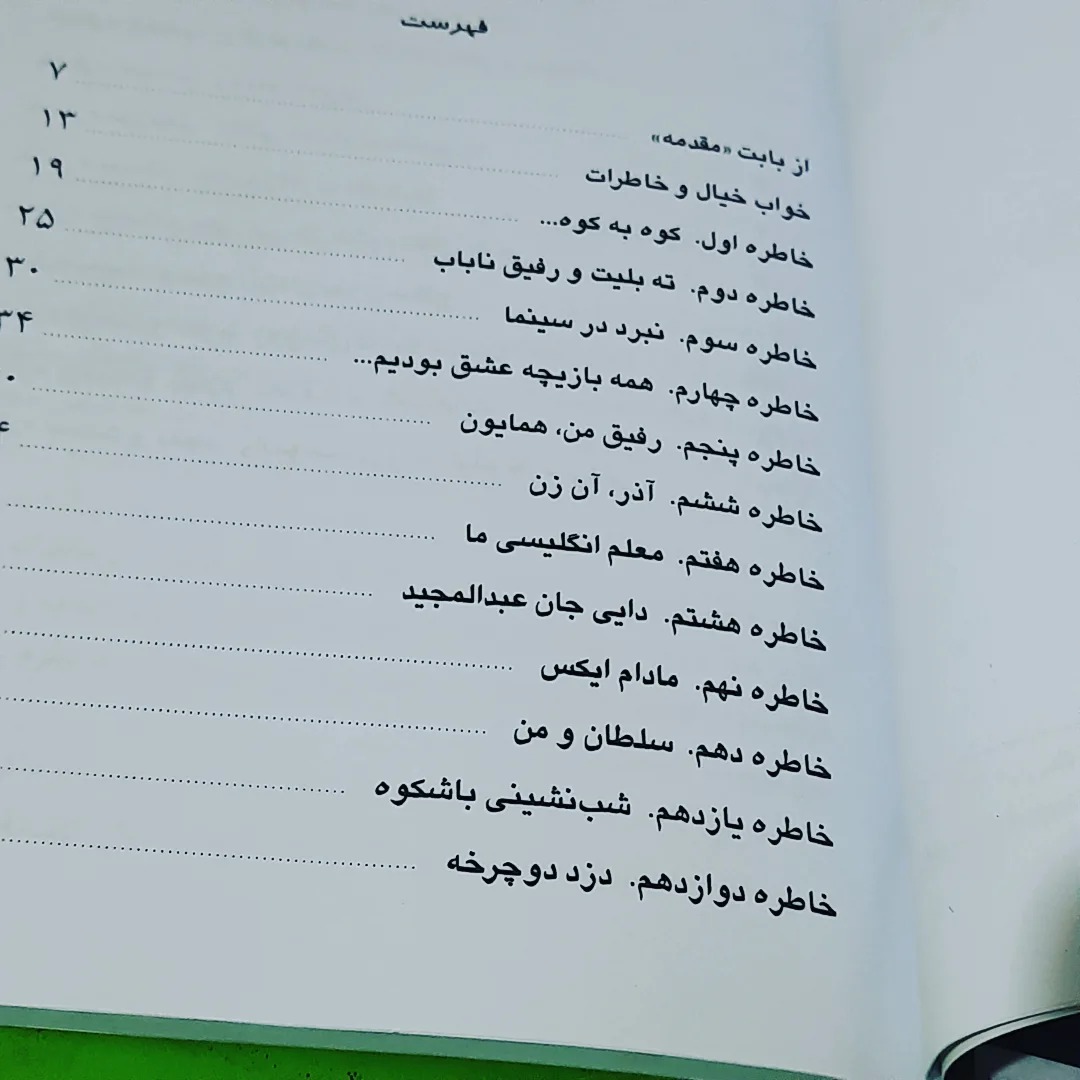 فهرست
از بابت «مقدمه» ........ ۷
خواب خیال و خاطرات ........ ۱۳
خاطره اول. کوه به کوه... ........ ۱۹
خاطره دوم. ته بلیت و رفیق ناباب ........ ۲۵
خاطره سوم. نبرد در سینما ........ ۳۰
خاطره چهارم. همه بازیچه عشق بودیم... ........ ۳۴
خاطره پنجم. رفیق من، همایون ........
خاطره ششم. آذر، آن زن ........
خاطره هفتم. معلم انگلیسی ما ........
خاطره هشتم. دایی جان عبدالمجید ........
خاطره نهم. مادام ایکس ........
خاطره دهم. سلطان و من ........
خاطره یازدهم. شب‌نشینی باشکوه ........
خاطره دوازدهم. دزد دوچرخه ........